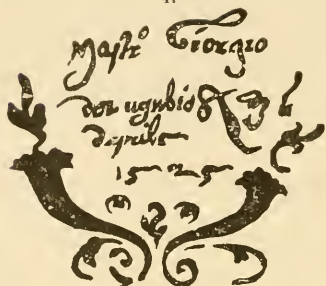 Mastrº Giorgio
ugubio
daprile
1525